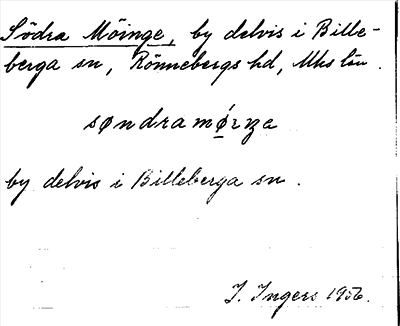 Södra Möinge, by delvis i Bille-
berga sn, Rönnebergs hd, Mhs län.
by delvis i Billeberga sn.
I. Ingers 1956.